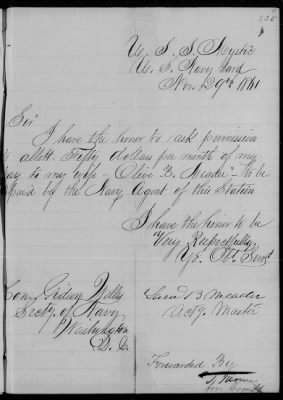 U. S. S. Mystic
U. S. Navy Yard
Nov. 29th 1861
Sir
I have the honor to ask permission
allott Fifty dollars per month of my
pay to my wife - Olive B. Meader - to be
paid by the Navy Agent of this Station
I have the honor to be
Very Respectfully
Yr. Obt. Servt
Hon. Gideon Welles
Secty. of Navy
Washington
D. C.
Saml B. Meader
Actg. Master
Forwarded By